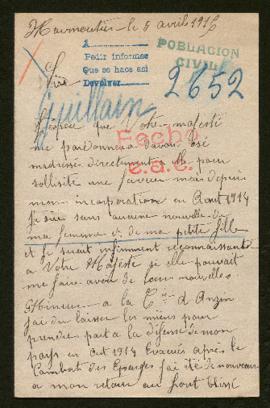 Marmoutier le 8 avril 1915
A
Pedir informes
Que se hace así
Devolver
POBLACION
CIVIL
2652
Sire
Guillain
J'espère que Votre majesté
me pardonnera d'avoir osé
madresser directement a elle pour
sollicité une faveur mais depuis
Fecho
e.a.c.
mon incorporation en Aout 1914
Je suis sans aucune nouvelle de
ma femme et de ma petite fille
et je serait infiniment reconnaissant
a Votre Majesté si elle pouvait
me faire avoir de leurs nouvelles
Mineur a la Cie d'Anzin
j'ai du laisser les miens pour
prendre part a la défense de mon
pays en Aout 1914 Evacué après le
Combat des Eparges j'ai été de nouveau
a mon retour au front blessé